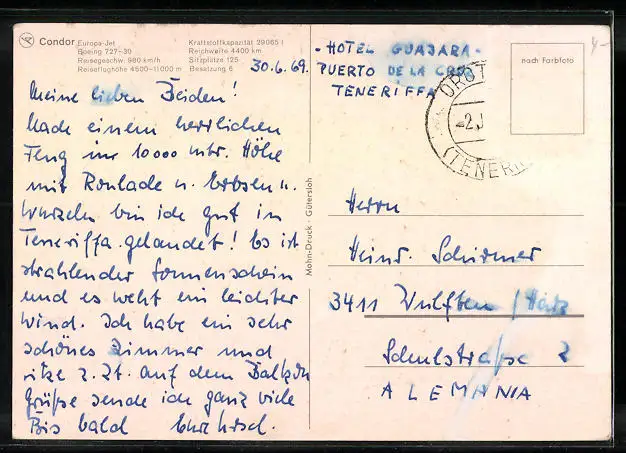 Condor
Europa-Jet
Boeing 727-30
Reisegeschw. 980 km/h
Reiseflughöhe 4500-11000 m
Kraftstoffkapazität 29065 l
Reichweite 4400 km
Sitzplätze 125
Besatzung 6
30.6.69.
Meine lieben Beiden!
Nach einem herrlichen
Flug in 10000 mtr. Höhe
mit Roulade u. Erbsen u.
Wurzeln bin ich gut in
Teneriffa gelandet! Es ist
strahlender Sonnenschein
und es weht ein leichter
Wind. Ich habe ein sehr
schönes Zimmer und
sitze z. Zt. auf dem Balkon
Grüße sende ich ganz viele
Bis bald
Mohn-Druck · Gütersloh
- HOTEL GUAJARA -
PUERTO DE LA CRUZ
TENERIFFA
OROT
2 J
(TENERI
nach Farbfoto
Herrn
Heinr. Schirmer
3411 Wulften / Harz
Schulstraße 2
ALEMANIA